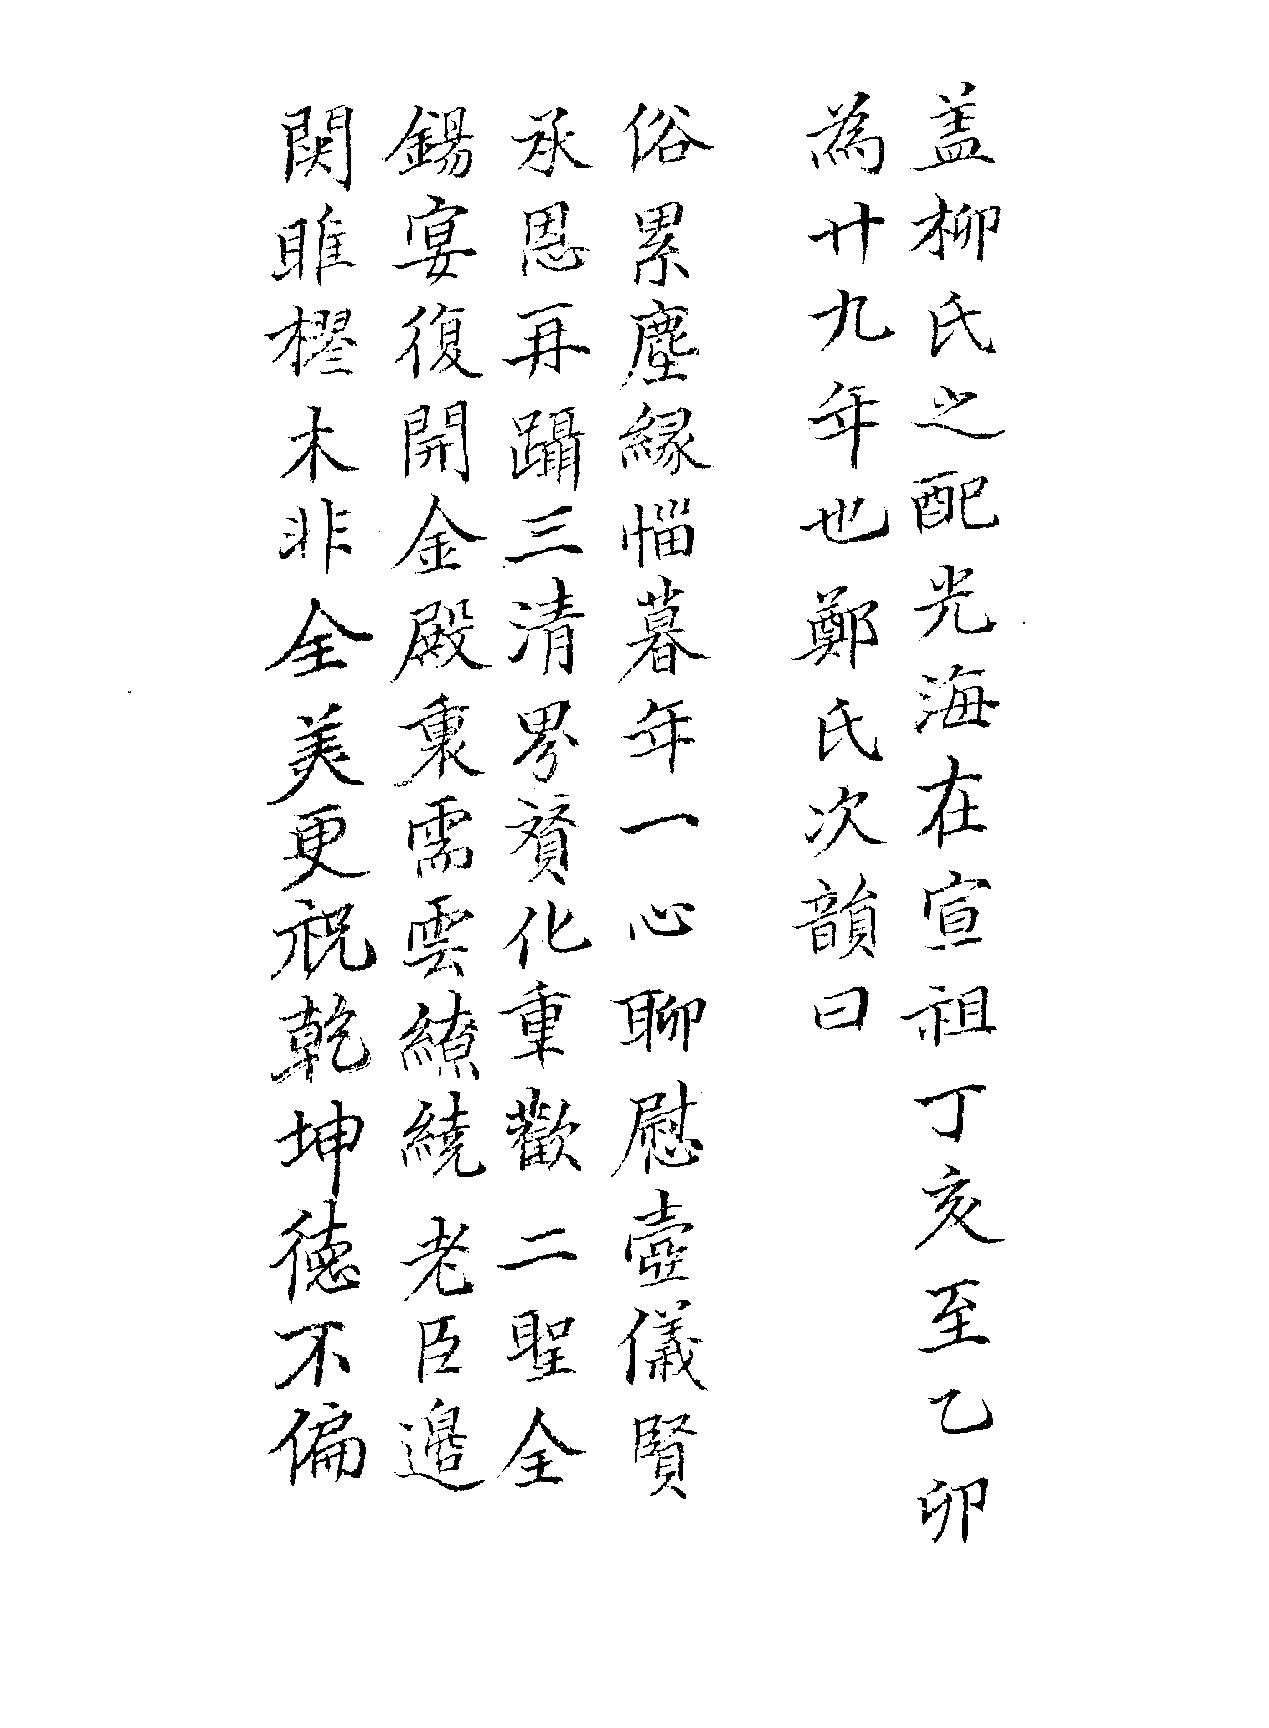 盖柳氏之配光海在宣祖丁亥至乙卯
為廿九年也鄭氏次韻曰
俗累塵緣惱暮年一心聊慰壼儀賢
承恩再躡三清界賛化重歡二聖全
錫宴復開金殿裏需雲繚繞老臣邉
関雎樛木非全美更祝乾坤徳不偏